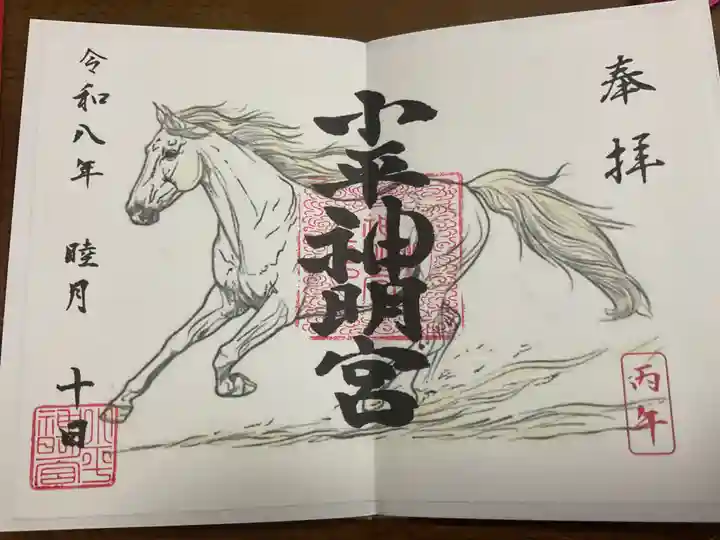 奉拝
丙午
小平神明宮
令和八年
睦月
十日